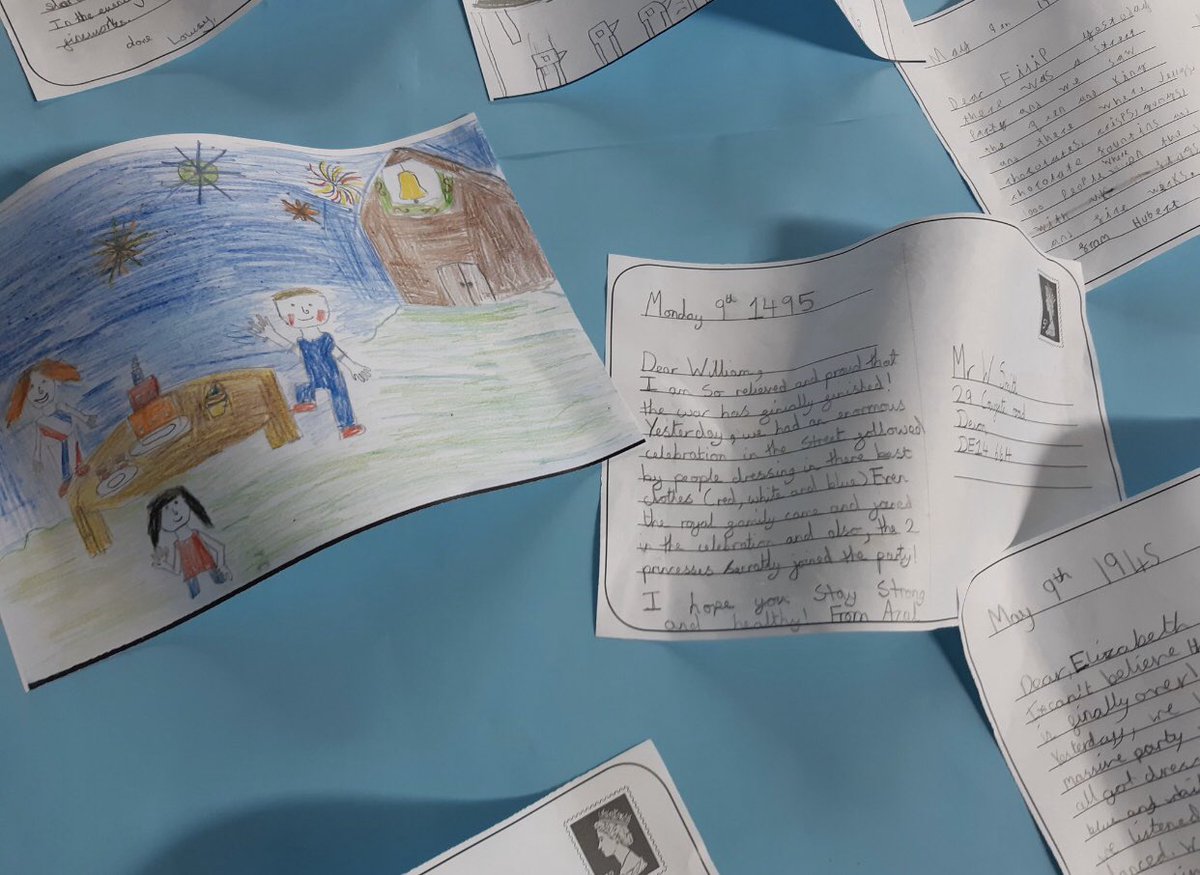 In the evening
fireworks.
love Lowsy
May 9th 19
Dear Filip yesteday
there was a street
party and we saw
the Queen and King
and there where
chocolates, crisps,
chocolate fountins and
1000 people where the
with
and fire works
from Hubert
Monday 9th 1495
Dear William,
I am so relieved and proud that
the war has finally finished!
Yesterday, we had an enormous
celebration in the street followed
by people dressing in there best
clothes (red, white and blue) Even
the royal family came and joined
in the celebration and also, the 2
princesses secratly joined the party!
I hope you stay strong
and healthy! From
Mr W
29 road
Devon
DE14
May 9th 1945
Dear, Elizabeth
I can't believe
is finally over!
Yesterday, we
massive party
all got
blue and
we listened
danced. W